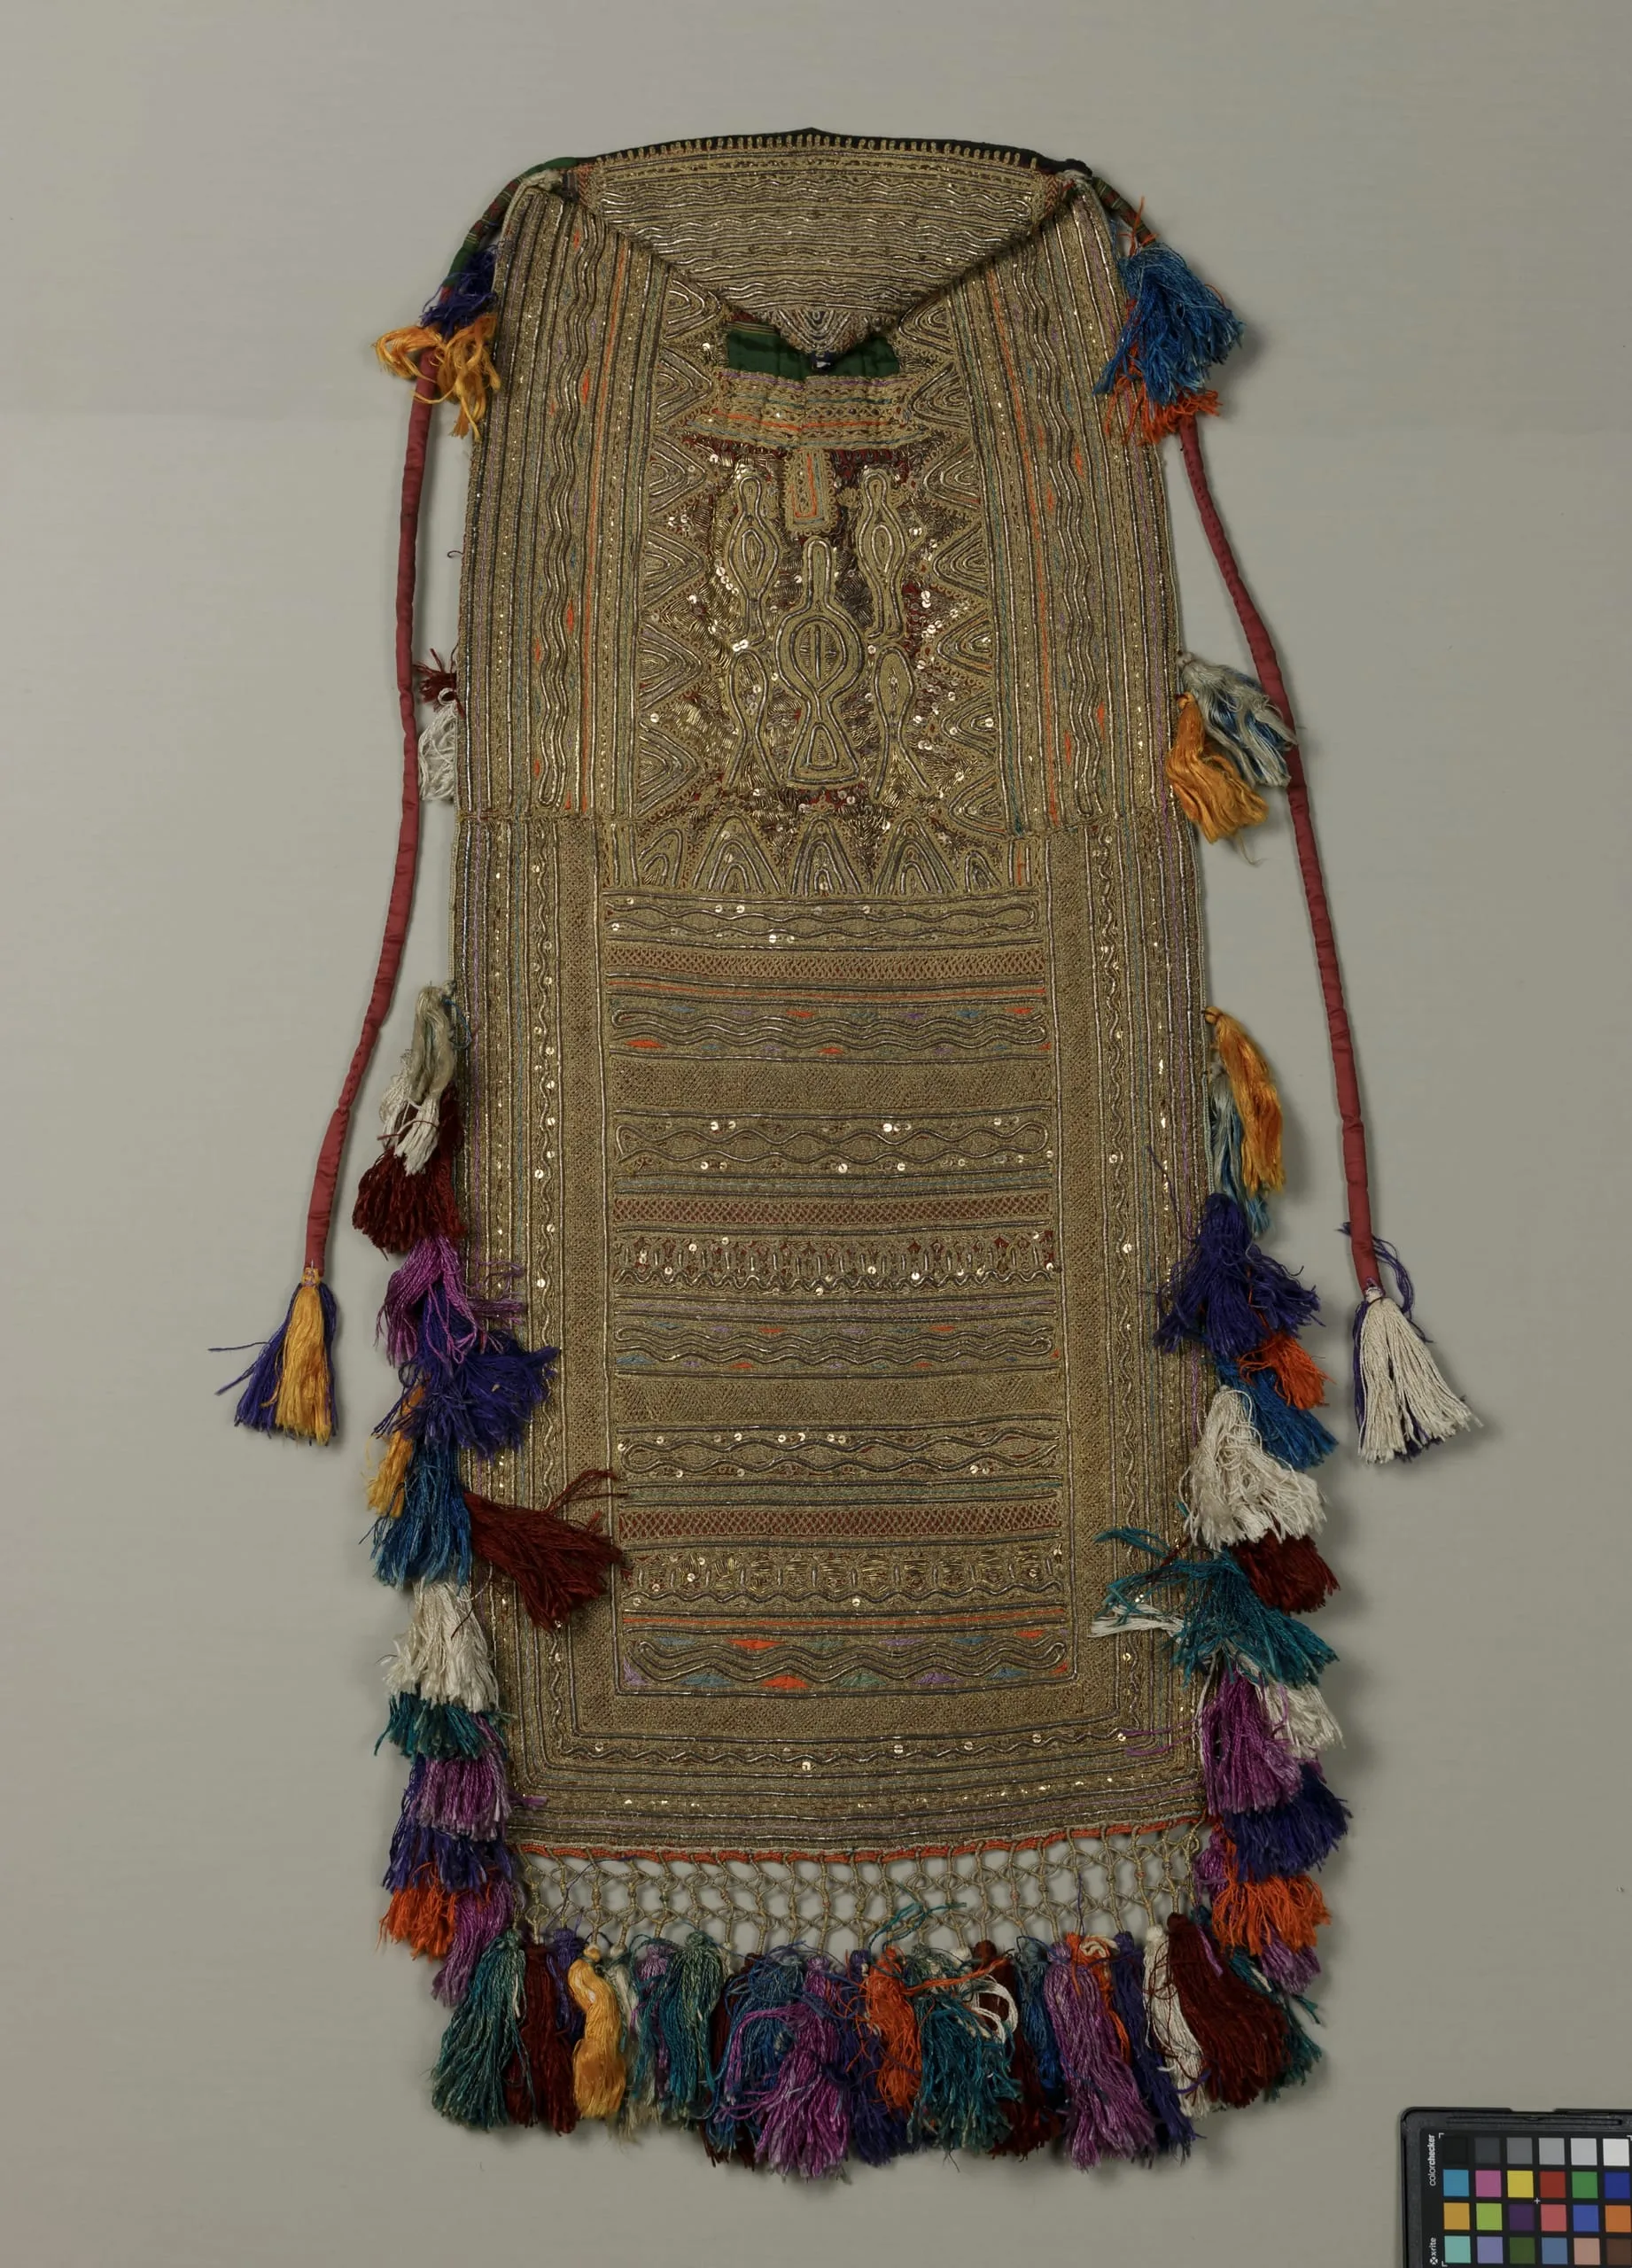 colorchecker
x-rite